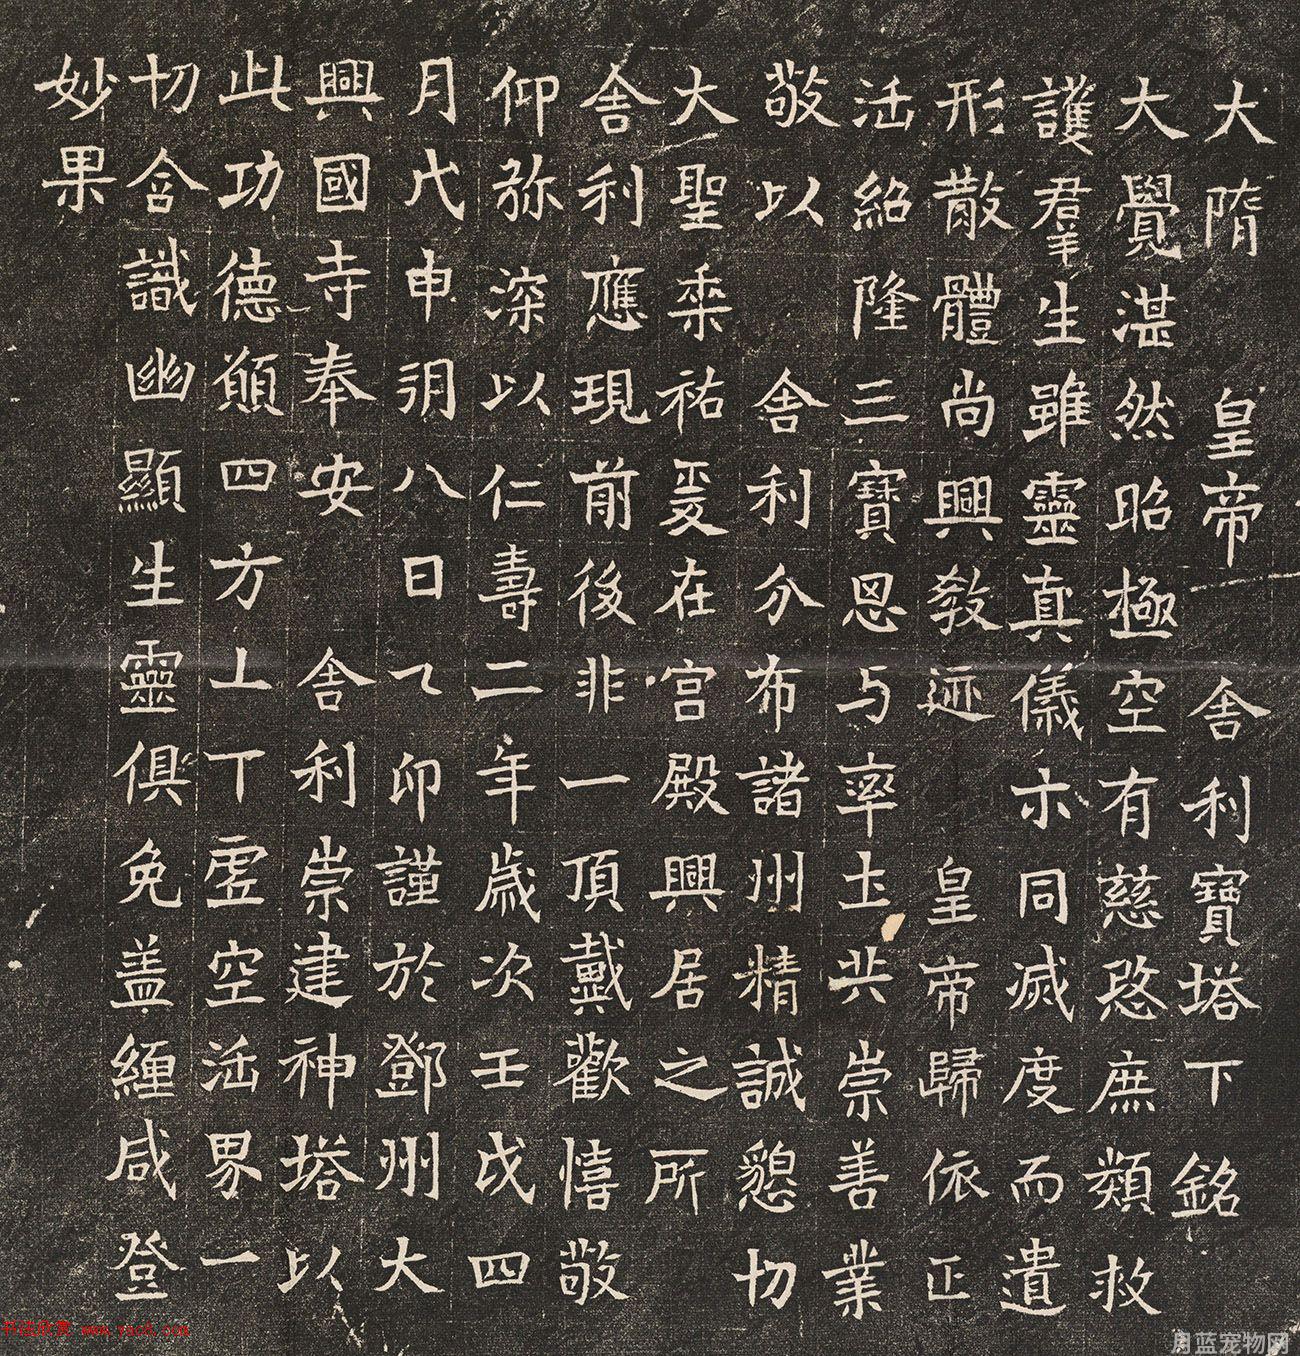 大隋 皇帝 舍利寶塔下銘
大覺湛然昭極空有慈愍庶類救
護羣生雖靈真儀亦同滅度而遺
形散體尚興教迹 皇帝歸依正
法紹隆三寶思与率土共崇善業
敬以 舍利分布諸州精誠懇切
大聖垂祐爰在宮殿興居之所
舍利應現前後非一頂戴歡憘敬
仰弥深以仁壽二年歲次壬戌四
月戊申朔八日乙卯謹於鄧州大
興國寺奉安 舍利崇建神塔以
此功德願四方上下虛空法界一
切含識幽顯生靈俱免蓋纏咸登
妙果
书法欣赏 www.yac8.com
月蓝宠物网